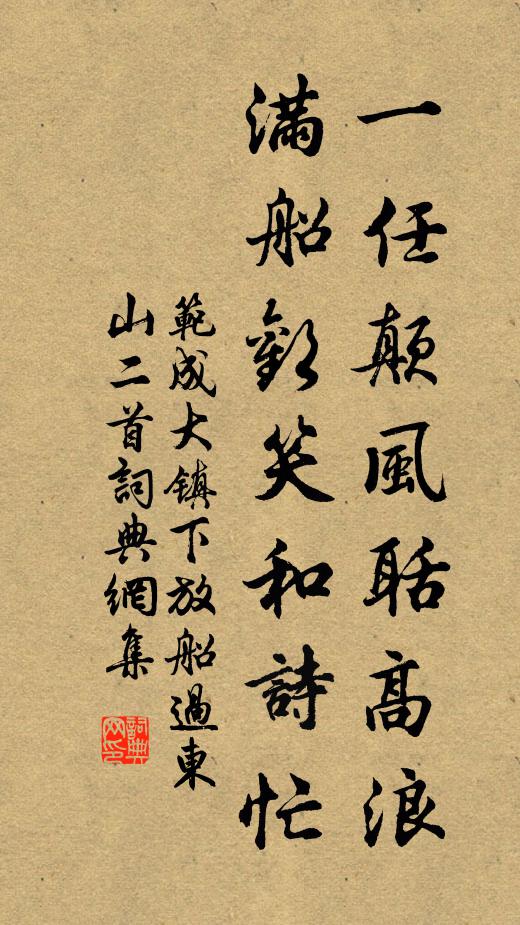 一任顛風聒高浪
滿船歡笑和詩忙
範成大鎮下放船過東
山二首詞典網集
詞典網印